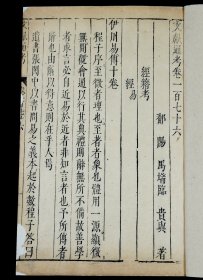 文獻通考卷一百七十六
鄱陽馬端臨貴與著
經籍考
經易
伊川易傳十卷
程子序至微者理也至著者象也體用一源顯微
無間觀會通以行其典禮則辭無所不備故善學
者求言必自近易於近者非知言者也予所傳者
辭也由辭以得意則在乎人焉
遺書張閎中以書問易之義本起於數程子答曰